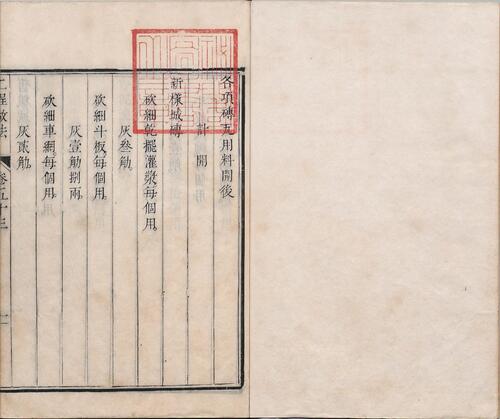 各項磚瓦用料開後
計開
新樣城磚
砍細乾擺灌漿每個用
灰叁觔
砍細斗板每個用
灰壹觔捌兩
砍細車網每個用
灰貳觔
工程做法
卷五十三
一